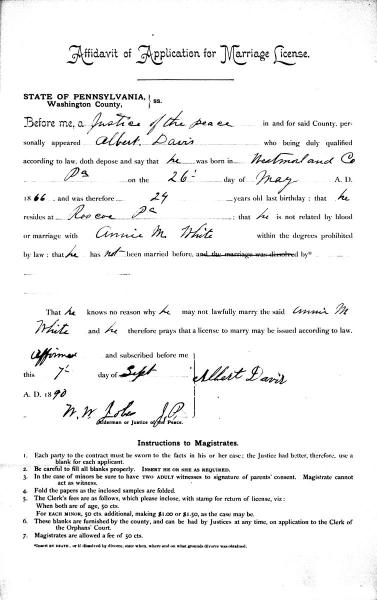 Affidavit of Application for Marriage License.
STATE OF PENNSYLVANIA,
Washington County, } ss.
Before me, a Justice of the peace in and for said County, per-
sonally appeared Albert Davis who being duly qualified
according to law, doth depose and say that he was born in Westmorland Co
Pa on the 26 day of May A. D.
1866 and was therefore 24 years old last birthday; that he
resides at Roscoe Pa ; that he is not related by blood
or marriage with Annie M. White within the degrees prohibited
by law; that he has not been married before, and the marriage was dissolved by*
That he knows no reason why he may not lawfully marry the said Annie M
White and he therefore prays that a license to marry may be issued according to law.
Affirmed and subscribed before me
this 7 day of Sept
Albert Davis
A. D. 1890
W. W. J.P.
Alderman or Justice of the Peace.
Instructions to Magistrates.
1. Each party to the contract must be sworn to the facts in his or her case; the Justice had better, therefore, use a
blank for each applicant.
2. Be careful to fill all blanks properly. INSERT HE OR SHE AS REQUIRED.
3. In the case of minors be sure to have TWO ADULT witnesses to signature of parents' consent. Magistrate cannot
act as witness.
4. Fold the papers as the inclosed samples are folded.
5. The Clerk's fees are as follows, which please inclose, with stamp for return of license, viz:
When both are of age, 50 cts.
FOR EACH MINOR, 50 cts. additional, making $1.00 or $1.50, as the case may be.
6. These blanks are furnished by the county, and can be had by Justices at any time, on application to the Clerk of
the Orphans' Court.
7. Magistrates are allowed a fee of 50 cts.
*INSERT BY DEATH, or if dissolved by divorce, state when, where and on what grounds divorce was obtained.